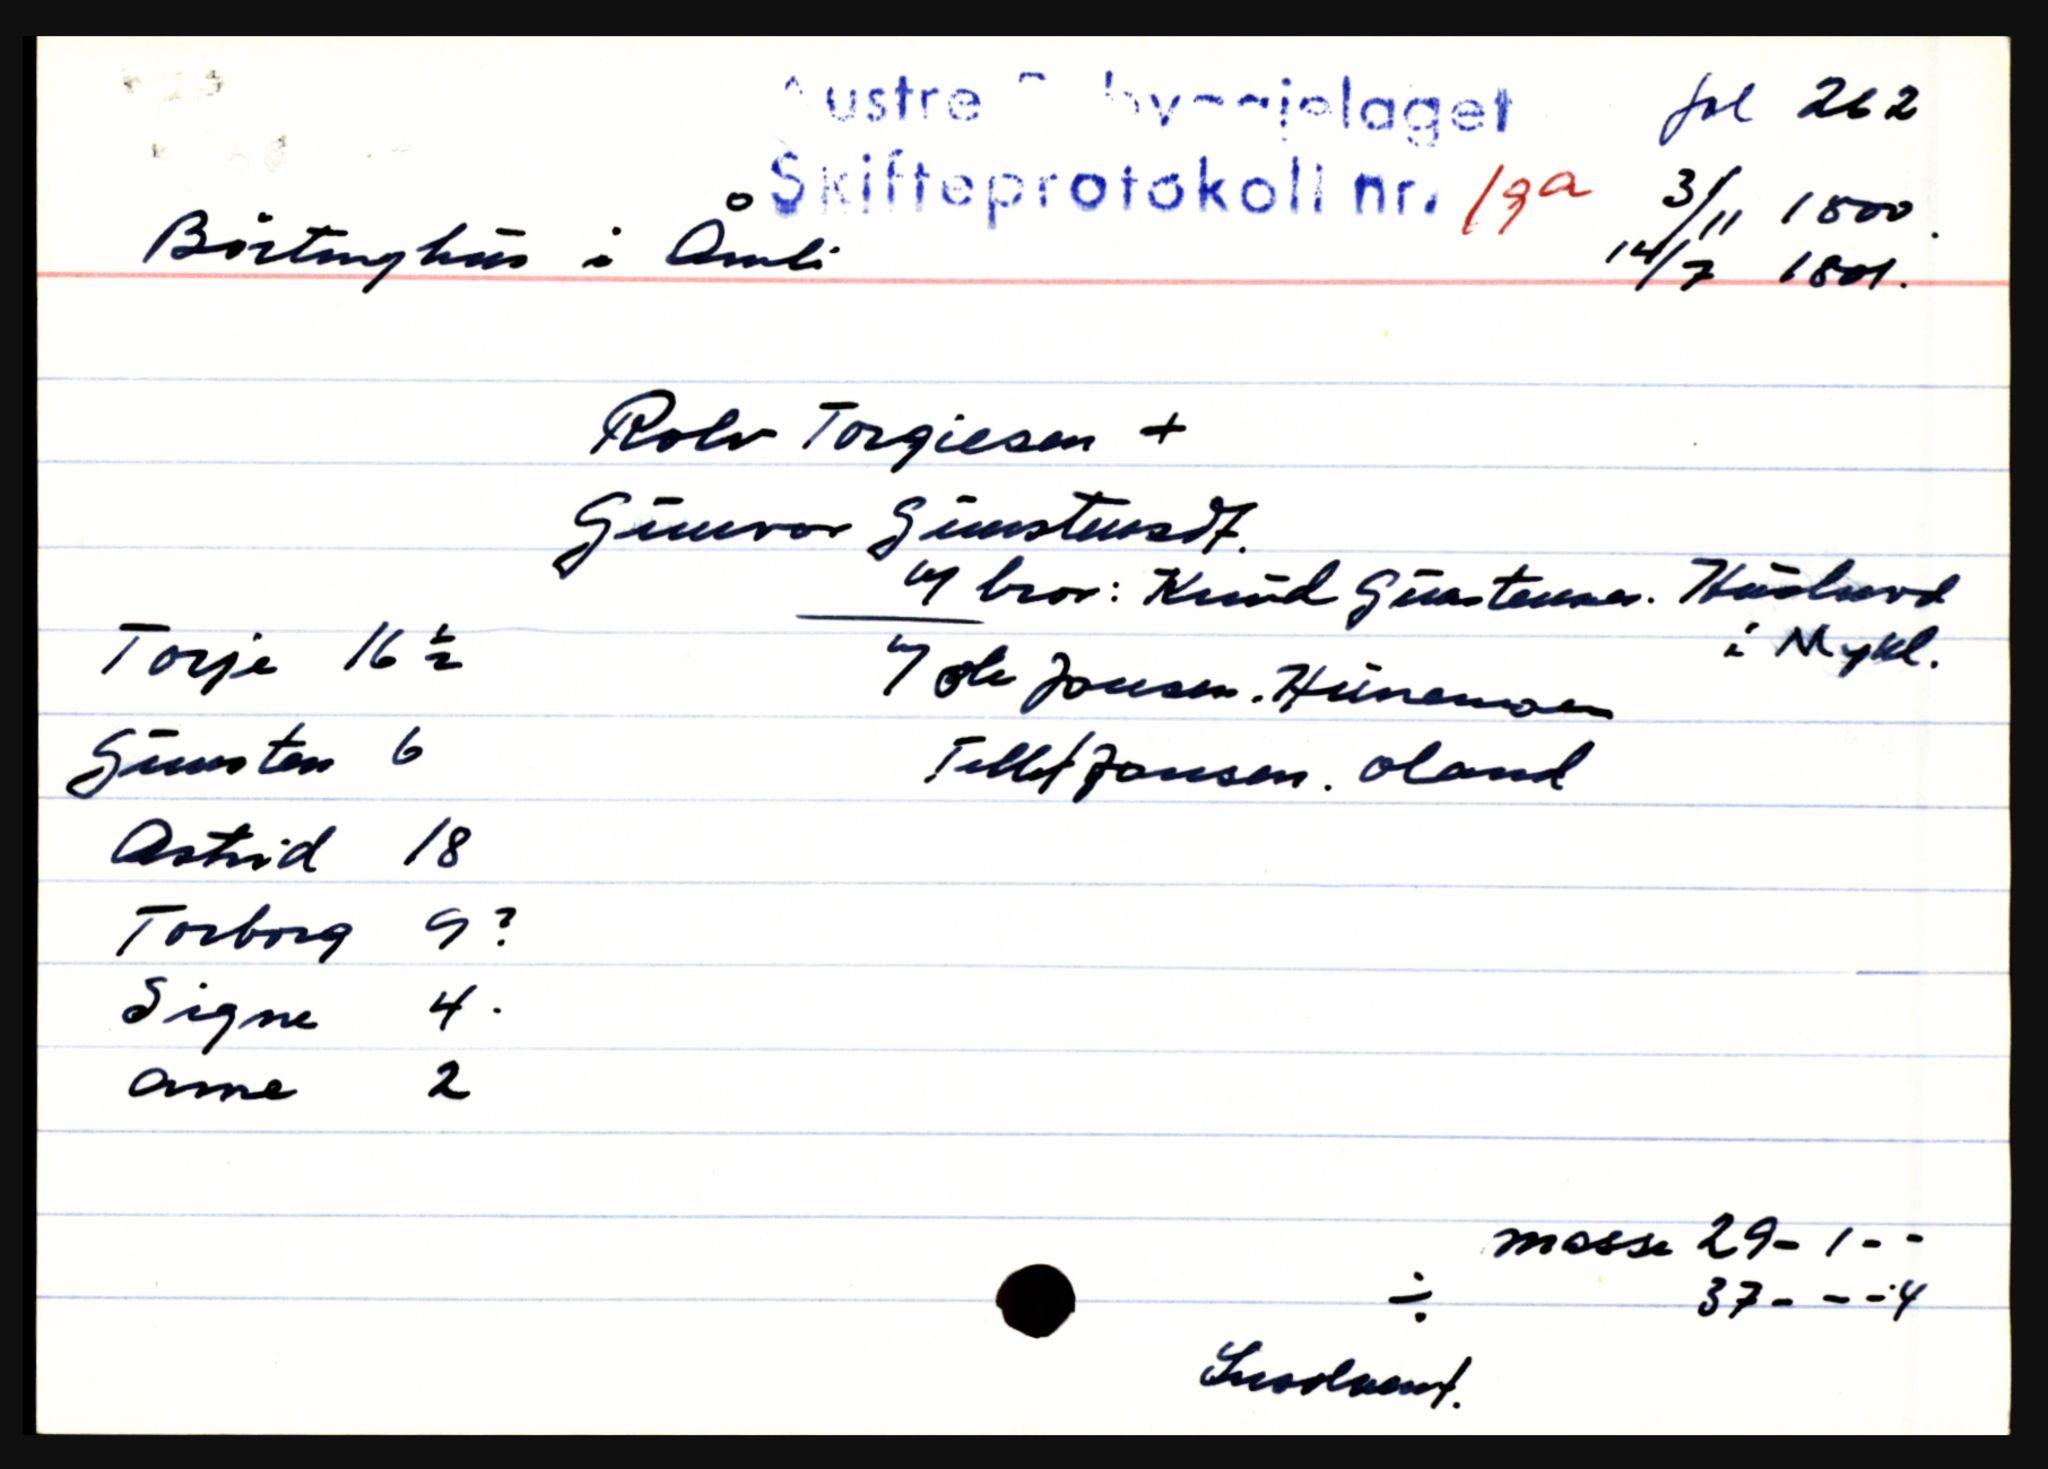 Austre R byggjelaget fol 262
Skifteprotokoll nr. 19a 3/11 1800.
Børtinghus i Åmli 14/7 1801.
Rolv Torgiesen +
Gunvor Gunstensdt.
m/ bror: Knud Gunstensen. Huslund
i Mykl.
Torje 16 1/2 m/ Ole Jonsen. Hunemoen
Gunsten 6 Tellef Jonsen. Oland
Astrid 18
Torborg 9?
Signe 4.
Arne 2
masse 29- 1 - -
÷ 37- - - 4
Insolvent.